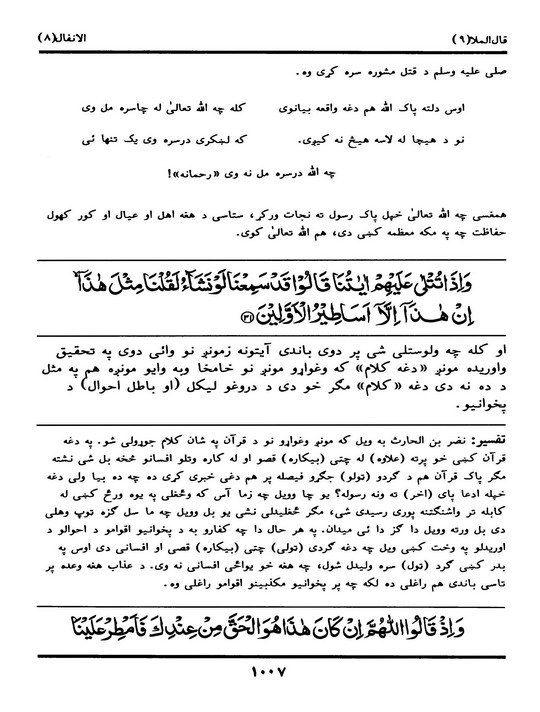 قال الملا(۹) الانفال(۸)
صلی علیه وسلم د قتل مشوره سره کړی وه.
اوس دلته پاک الله هم دغه واقعه بیانوی کله چه الله تعالیٰ له چاسره مل وی
نو د هیچا له لاسه هیڅ نه کیږی. که لښکری درسره وی یک تنها ئی
چه الله درسره مل نه وی «رحمانه»!
همغسی چه الله تعالیٰ خپل پاک رسول ته نجات ورکړ، ستاسی د هغه اهل او عیال او کور کهول
حفاظت چه په مکه معظمه کښی دی، هم الله تعالیٰ کوی.
وَاِذَا تُتْلٰی عَلَیْهِمْ اٰیٰتُنَا قَالُوْا قَدْ سَمِعْنَا لَوْ نَشَآءُ لَقُلْنَا مِثْلَ هٰذَاۤ
اِنْ هٰذَاۤ اِلَّاۤ اَسَاطِیْرُ الْاَوَّلِیْنَ ﴿۳۱﴾
او کله چه ولوستلی شی پر دوی باندی آیتونه زمونږ نو وائی دوی په تحقیق
واوریده مونږ «دغه کلام» که وغواړو مونږ نو خامخا وبه وایو مونږه هم په مثل
د ده نه دی دغه «کلام» مگر خو دی د دروغو لیکل (او باطل احوال) د
پخوانیو.
تفسیر: نضر بن الحارث به ویل که مونږ وغواړو نو د قرآن په شان کلام جوړولی شو. په دغه
قرآن کښی خو پرته (علاوه) له چتی (بیکاره) قصو او له کاره وتلو افسانو څخه بل شی نشته
مگر پاک قرآن هم د گردو (تولو) جگړو فیصله پر هم دغی خبری کړی ده چه ده بیا ولی دغه
خپله ادعا پای (اخر) ته ونه رسوله؟ یو چا وویل چه زما آس که وځغلی په یوه ورځ کښی له
کابله تر واشنگتنه پوری رسیدی شی، مگر ځغلیدلی نشی یو بل وویل چه ما سل گزه توپ وهلی
دی بل ورته وویل دا گز دا ئی میدان. په هر حال دا چه کفارو به د پخوانیو اقوامو د احوالو د
اوریدلو په وخت کښی ویل چه دغه گردی (تولی) چتی (بیکاره) قصی او افسانی دی اوس په
بدر کښی گرد (تول) سره ولیدل شول، چه هغه خو یواځی افسانی نه وی. د عذاب هغه وعده پر
تاسی باندی هم راغلی ده لکه چه پر پخوانیو مکذبینو اقوامو راغلی وه.
وَاِذْ قَالُوا اللّٰهُمَّ اِنْ كَانَ هٰذَا هُوَ الْحَقَّ مِنْ عِنْدِكَ فَاَمْطِرْ عَلَیْنَا
۱۰۰۷